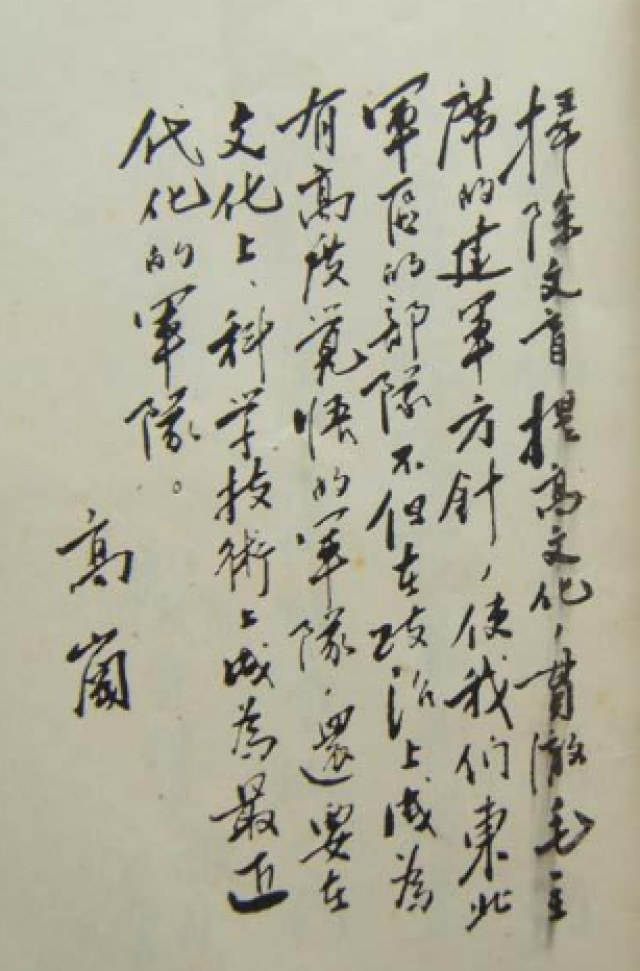 掃除文盲提高文化，貫澈毛主
席的建軍方針，使我们東北
軍區的部隊不但在政治上成為
有高度覺悟的軍隊，還要在
文化上、科学技術上成為最近
代化的軍隊。
高崗